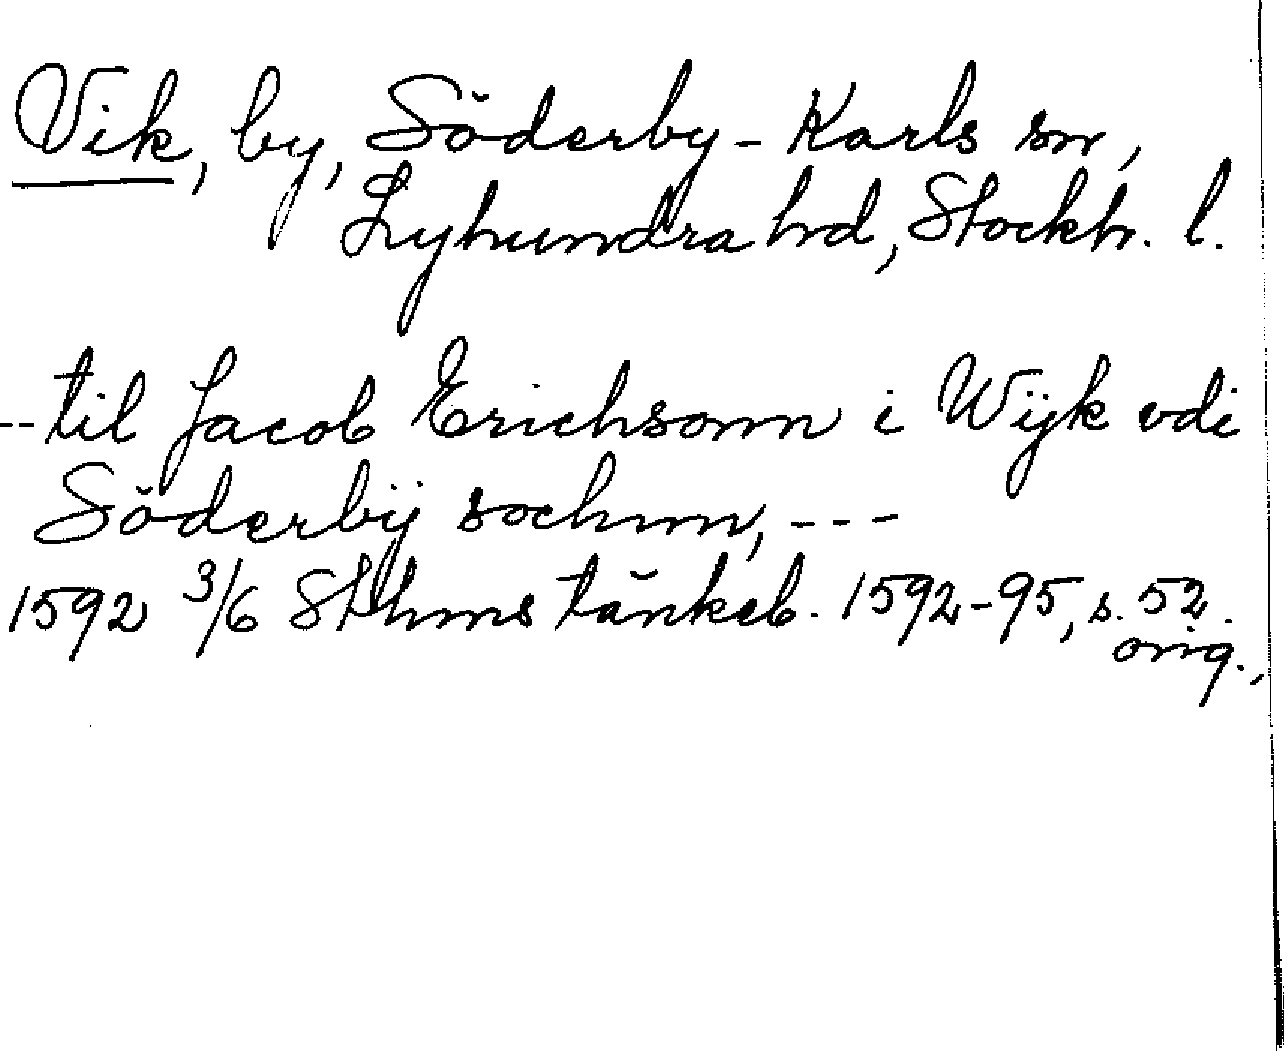 Vik, by, Söderby-Karls sn,
Lyhundra hd, Stockh. l.
-- til Jacob Erichsonn i Wijk vdi
Söderbÿ sochnn, ---
1592 3/6 Sthms tänkeb. 1592-95, s. 52.
orig.,